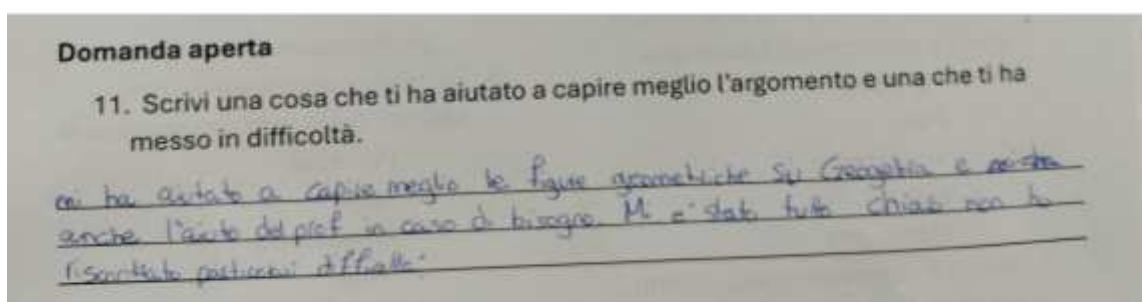 Domanda aperta
11. Scrivi una cosa che ti ha aiutato a capire meglio l'argomento e una che ti ha
messo in difficoltà.
mi ha aiutato a capire meglio le figure geometriche su e
anche l'aiuto del prof in caso di bisogno. M è stato tutto chiaro non ho
riscontrato particolari difficoltà.